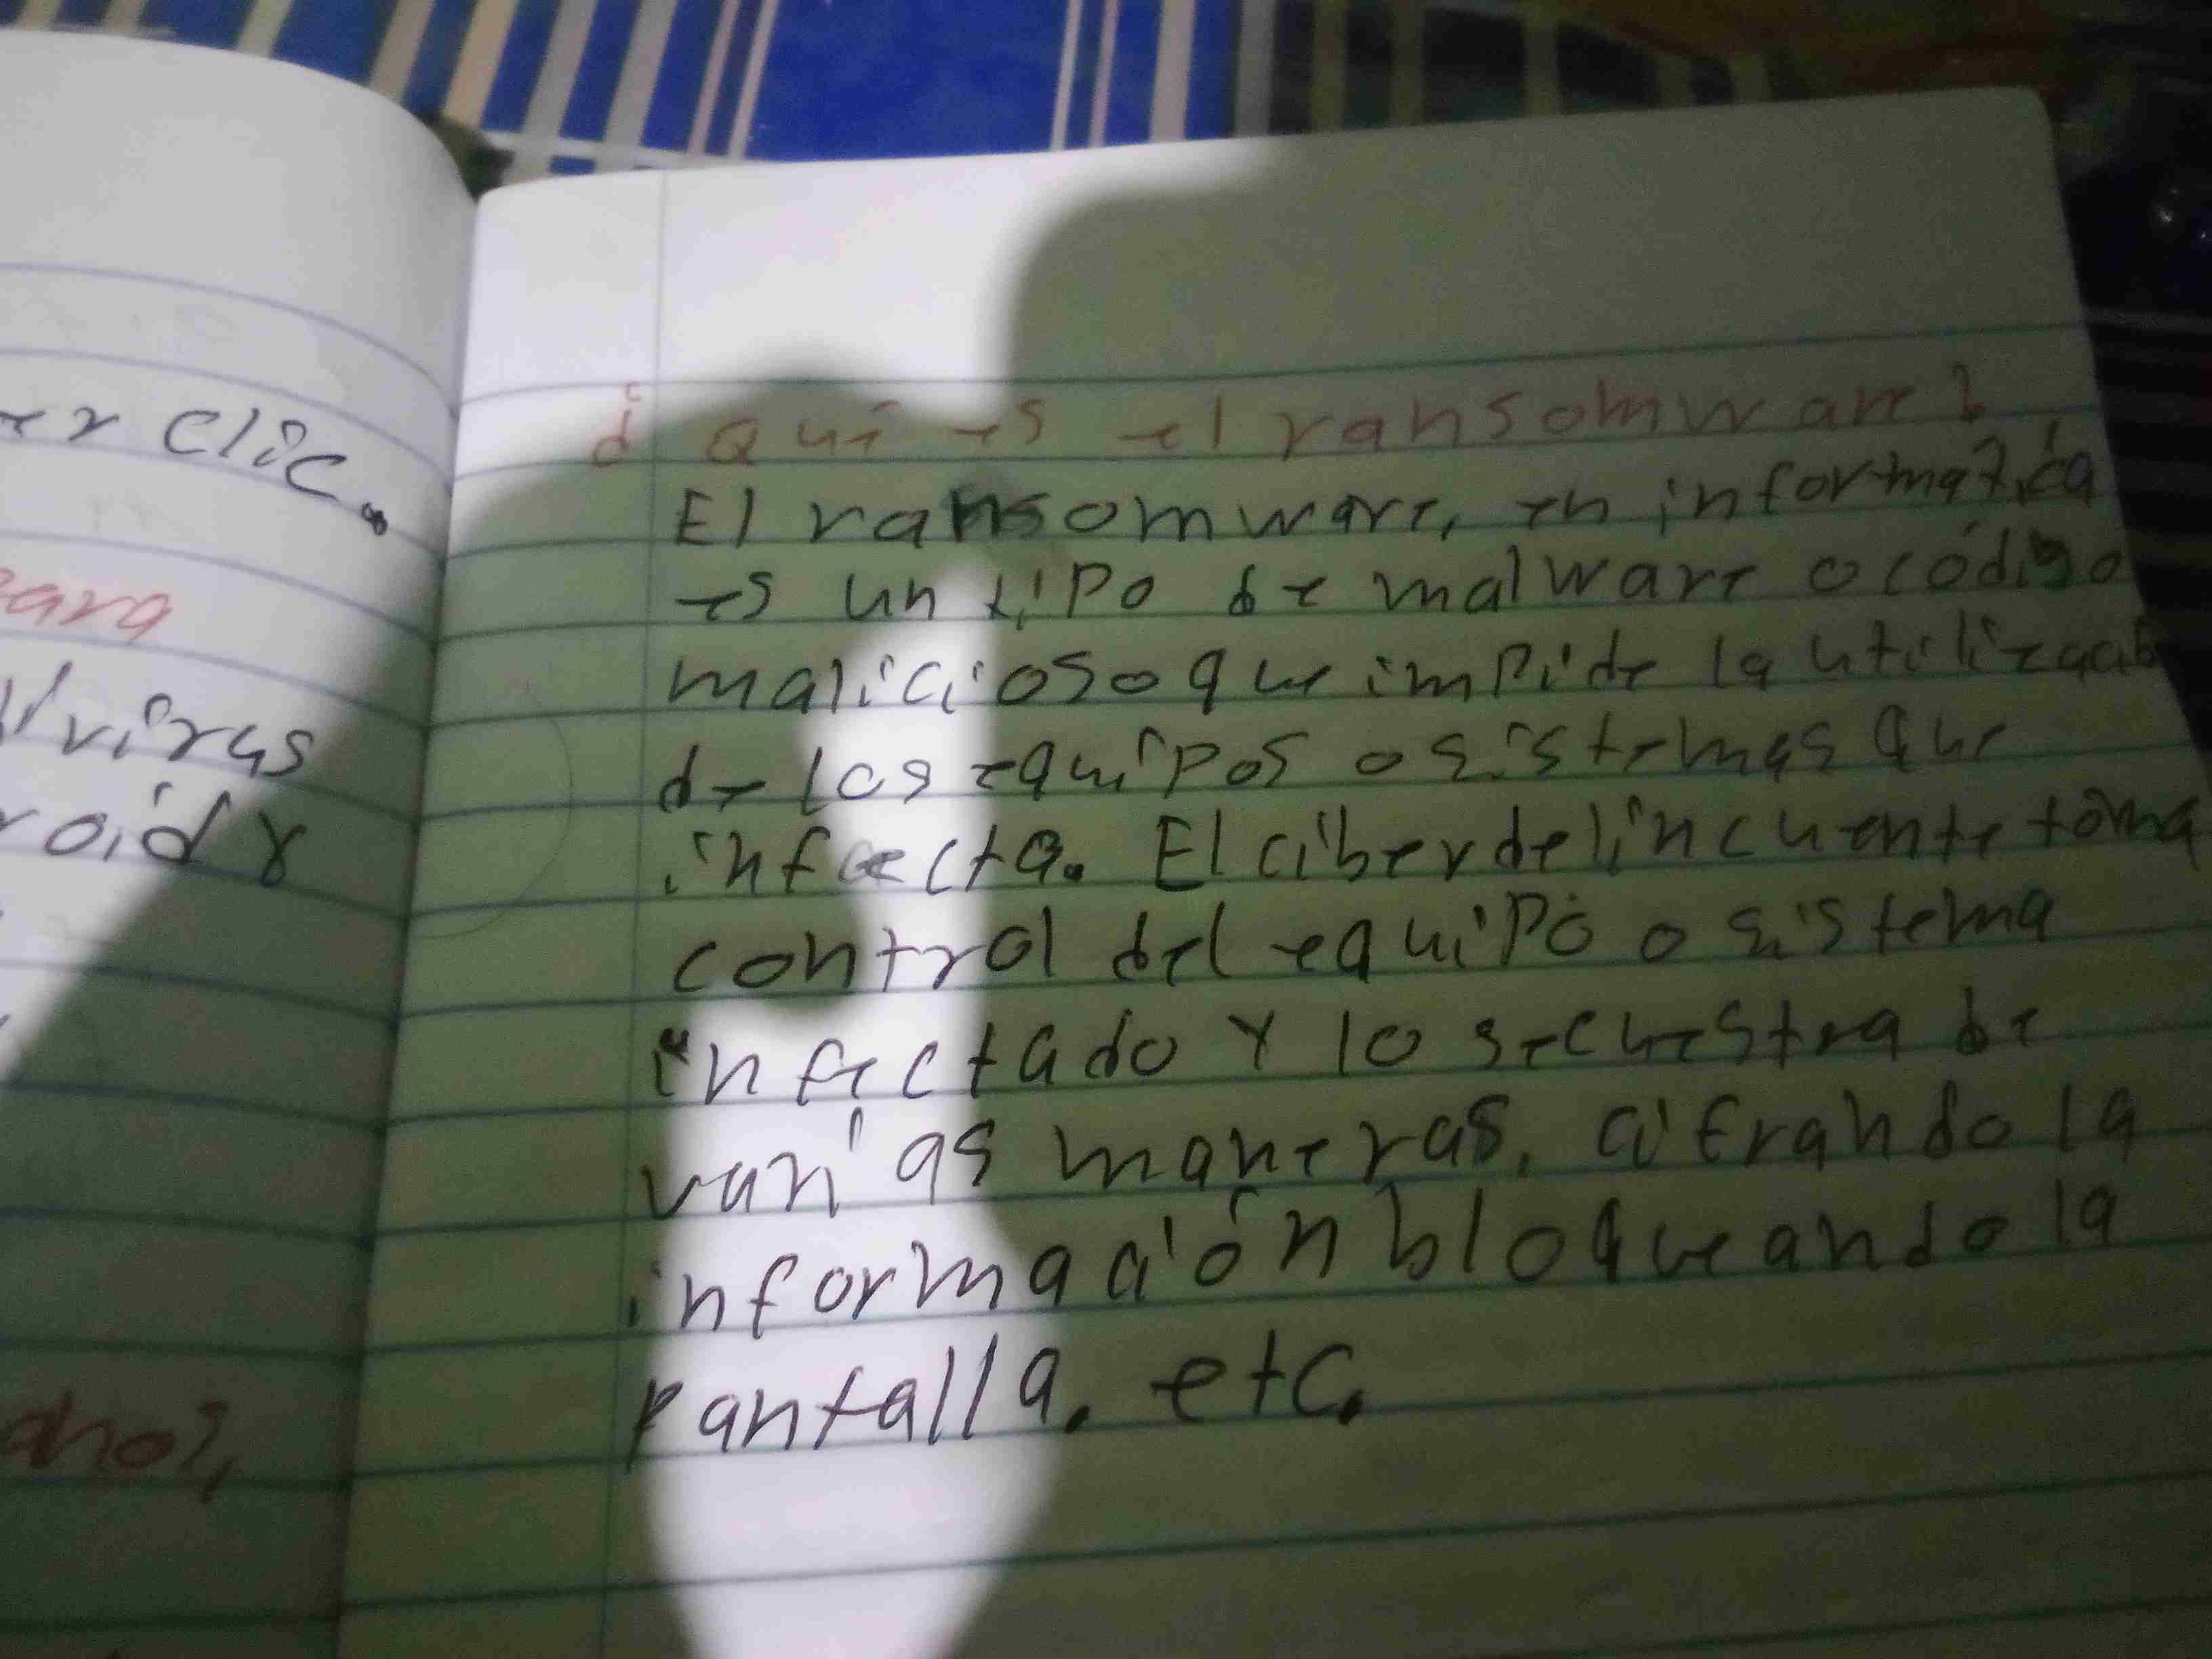 er clic.
para
virus
roid y
¿Qué es el ransomware?
El ransomware, en informática
es un tipo de malware o código
malicioso que impide la utilizaci
de los equipos o sistemas que
infecta. El ciberdelincuente toma
control del equipo o sistema
infectado y lo secuestra de
varias maneras, cifrando la
información bloqueando la
pantalla. etc.